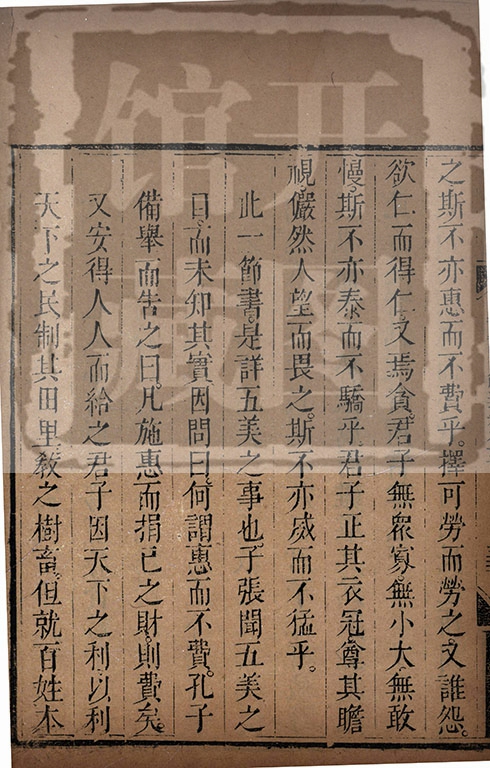 之斯不亦惠而不費乎。擇可勞而勞之。又誰怨。
欲仁而得仁。又焉貪。君子無衆寡。無小大。無敢
慢。斯不亦泰而不驕乎。君子正其衣冠。尊其瞻
視。儼然人望而畏之。斯不亦威而不猛乎。
此一節書。是詳五美之事也。子張聞五美之
目。而未知其實。因問曰。何謂惠而不費。孔子
備舉而告之曰。凡施惠而捐已之財。則費矣。
又安得人人而給之。君子因天下之利。以利
天下之民。制其田里。教之樹畜。但就百姓本